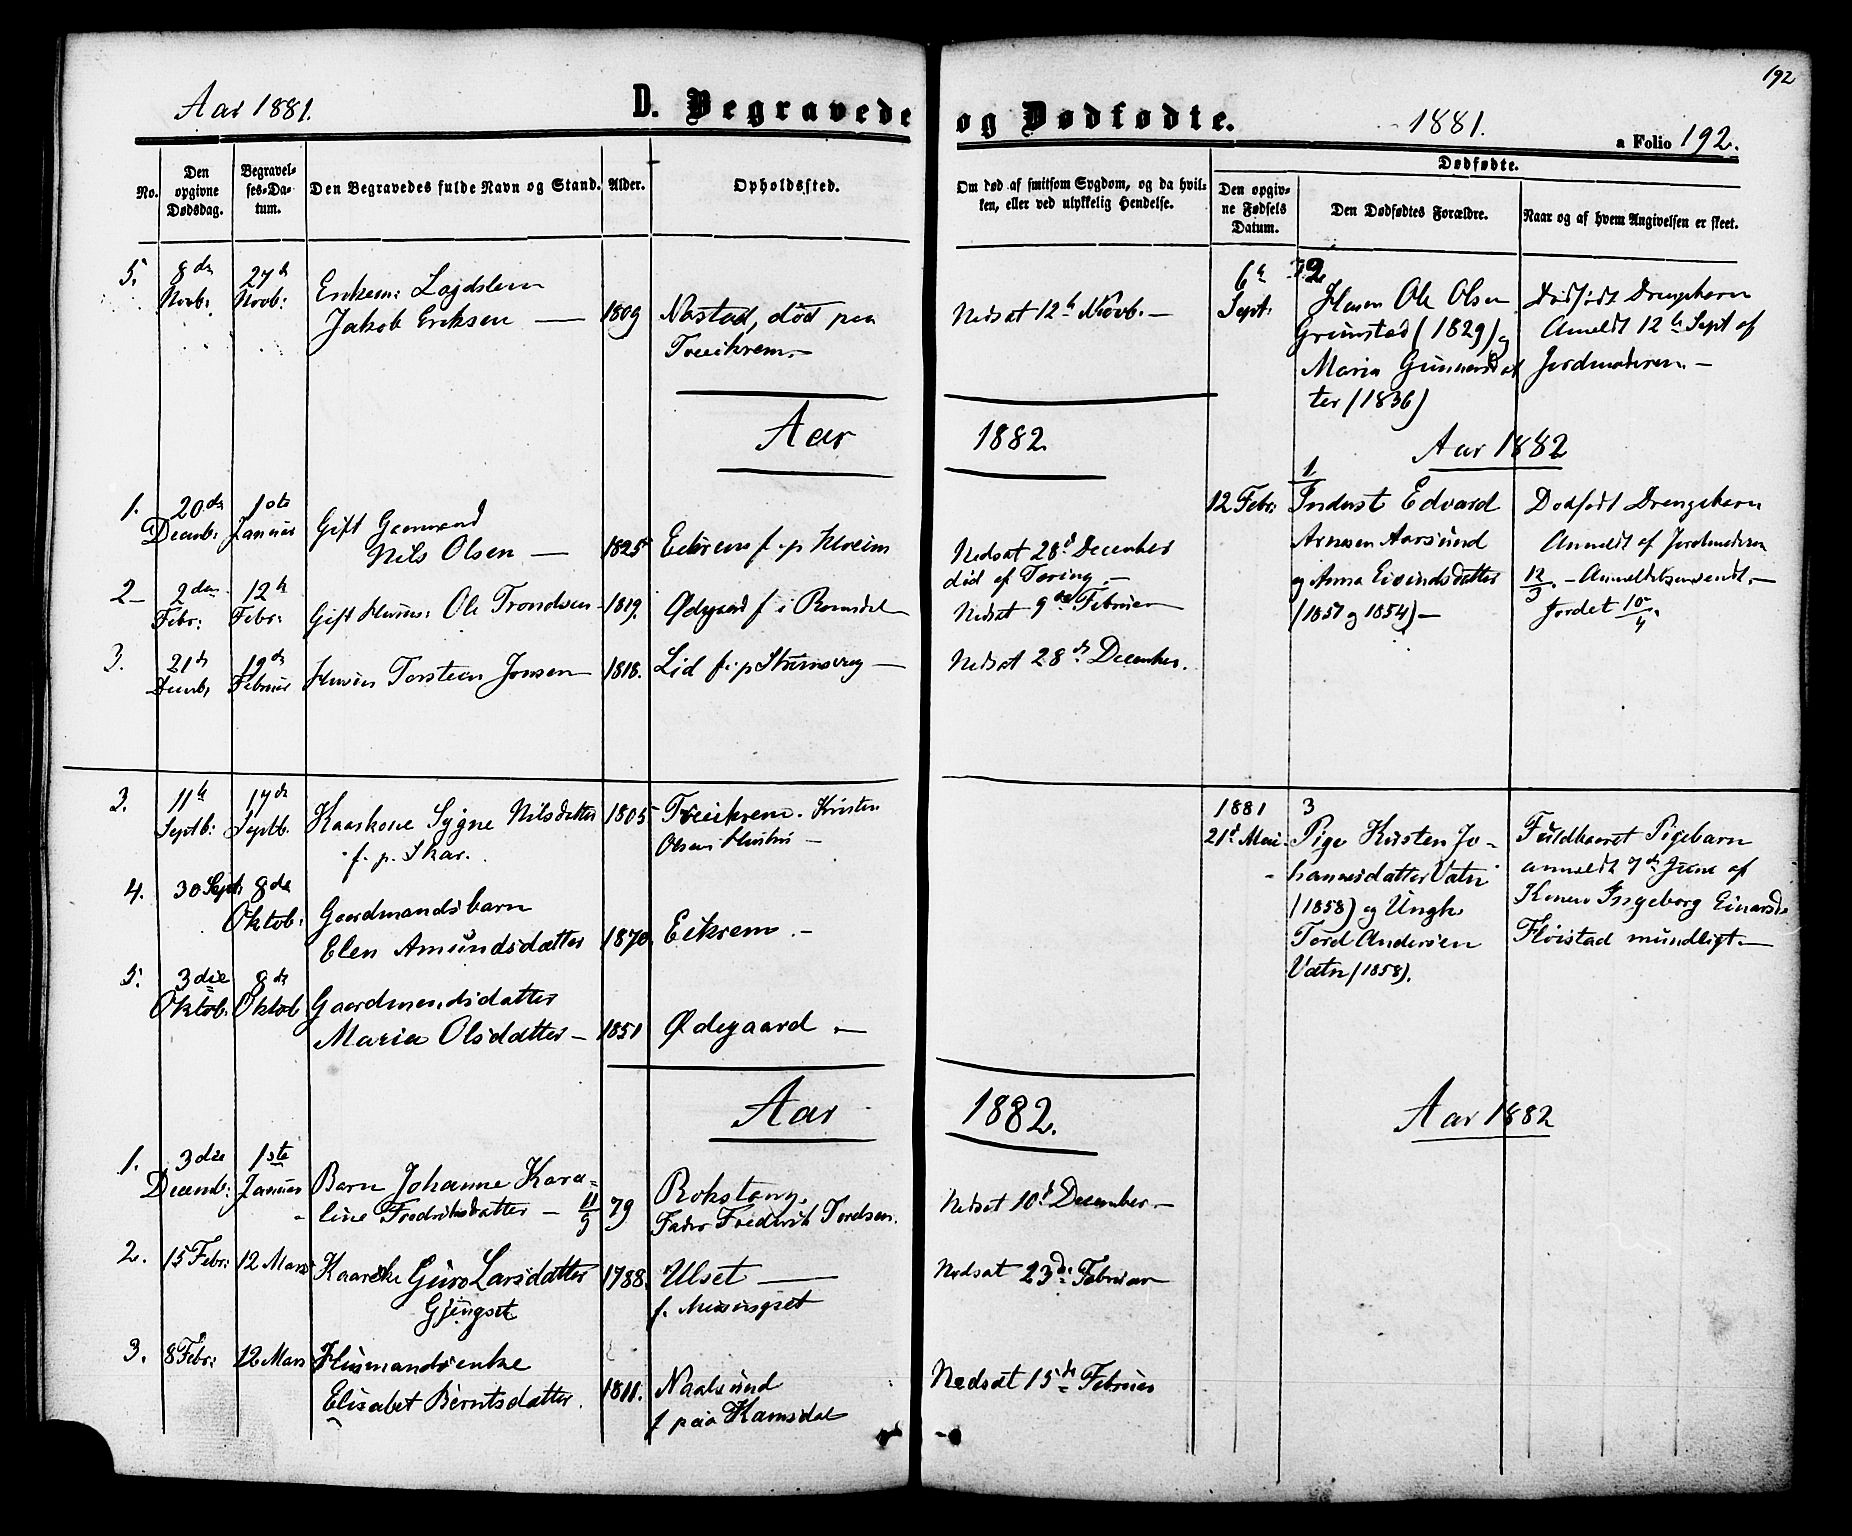 192
Aar 1881.
D. Begravede og Dødfødte.
1881.
a Folio 192.
No.
Den opgivne Dødsdag.
Begravelses-Datum.
Den Begravedes fulde Navn og Stand.
Alder.
Opholdssted.
Om død af smitsom Sygdom, og da hvilken, eller ved ulykkelig Hendelse.
Dødfødte.
Den opgivne Fødsels Datum.
Den Dødfødtes Forældre.
Naar og af hvem Angivelsen er skeet.
5. 8de Novb: 27de Novb:
Jakob Eriksen — 1809
Nastad, død paa
Treeikrem.—
Nedsat 12te Novb.—
6te Sept:
2
Ole Olsen
Grimstad (1829) og
Maria Gunnarsdat
ter (1836)
Dødfødt Drengebarn
Anmeldt 12te Sept af
Jordmoderen.—
Aar 1882.
Aar 1882
1. 20de Decemb: 1ste Januar
Gift Gaarmand
Nils Olsen — 1825
Eikrem f. p.
Nedsat 28de December
død af Tæring.—
2 2den Febr: 12te Febr:
Gift Ole Trondsen 1819.
Ødegaard f i Romsdal
Nedsat 9de Februar
3. 21de Decemb. 19de Februar
Torstein Jonsen 1818.
Lid f. p.
Nedsat 28de December.
12 Febr:
1
Inderst Edvard
Arnesen Aarsund
og Anna Eivindsdatter
(1857 og 1854)—
Dødfødt Drengebarn
Anmeldt af Jordmoderen
12/3.
Jordet 10/4.
3. 11te Septb: 17de Septb.
Kaarkone Sygne Nilsdatter 1805
f. p. Skar.
Treeikrem. Kristen
Olsens Hustru —
4. 30 Sept: 8de Oktob:
Gaardmandsbarn
Elen Amundsdatter 1870.
Eikrem.—
5. 3die Oktob: 8de Oktob
Gaardmandsdatter
Maria Olsdatter— 1851
Ødegaard.—
1881
21de Mai
3
Pige Kirsten Jo-
hannesdatter Vatn
(1858) og Ungk.
Tord Andersen
Vatn (1858).
Fuldbaaret Pigebarn
anmeldt 7de Juni af
Konen Ingeborg Einarsd.
Fløistad mundligt.—
Aar 1882.
Aar 1882
1. 3die Decemb: 1ste Januar
Barn Johanne Kara-
line Fredriksdatter — 11/9 79
Rokstang.
Fader Frederik Tordsen.
Nedsat 10de December.—
2. 15 Febr: 12 Mars
Guro Larsdatter 1788.
Gjengset
Ulset —
Nedsat 23de Februar
3. 8 Febr: 12 Mars
Husmandsenke
Elisabet Berntsdatter. 1811.
Naalsund
f paa Romsdal
Nedsat 15de Februar